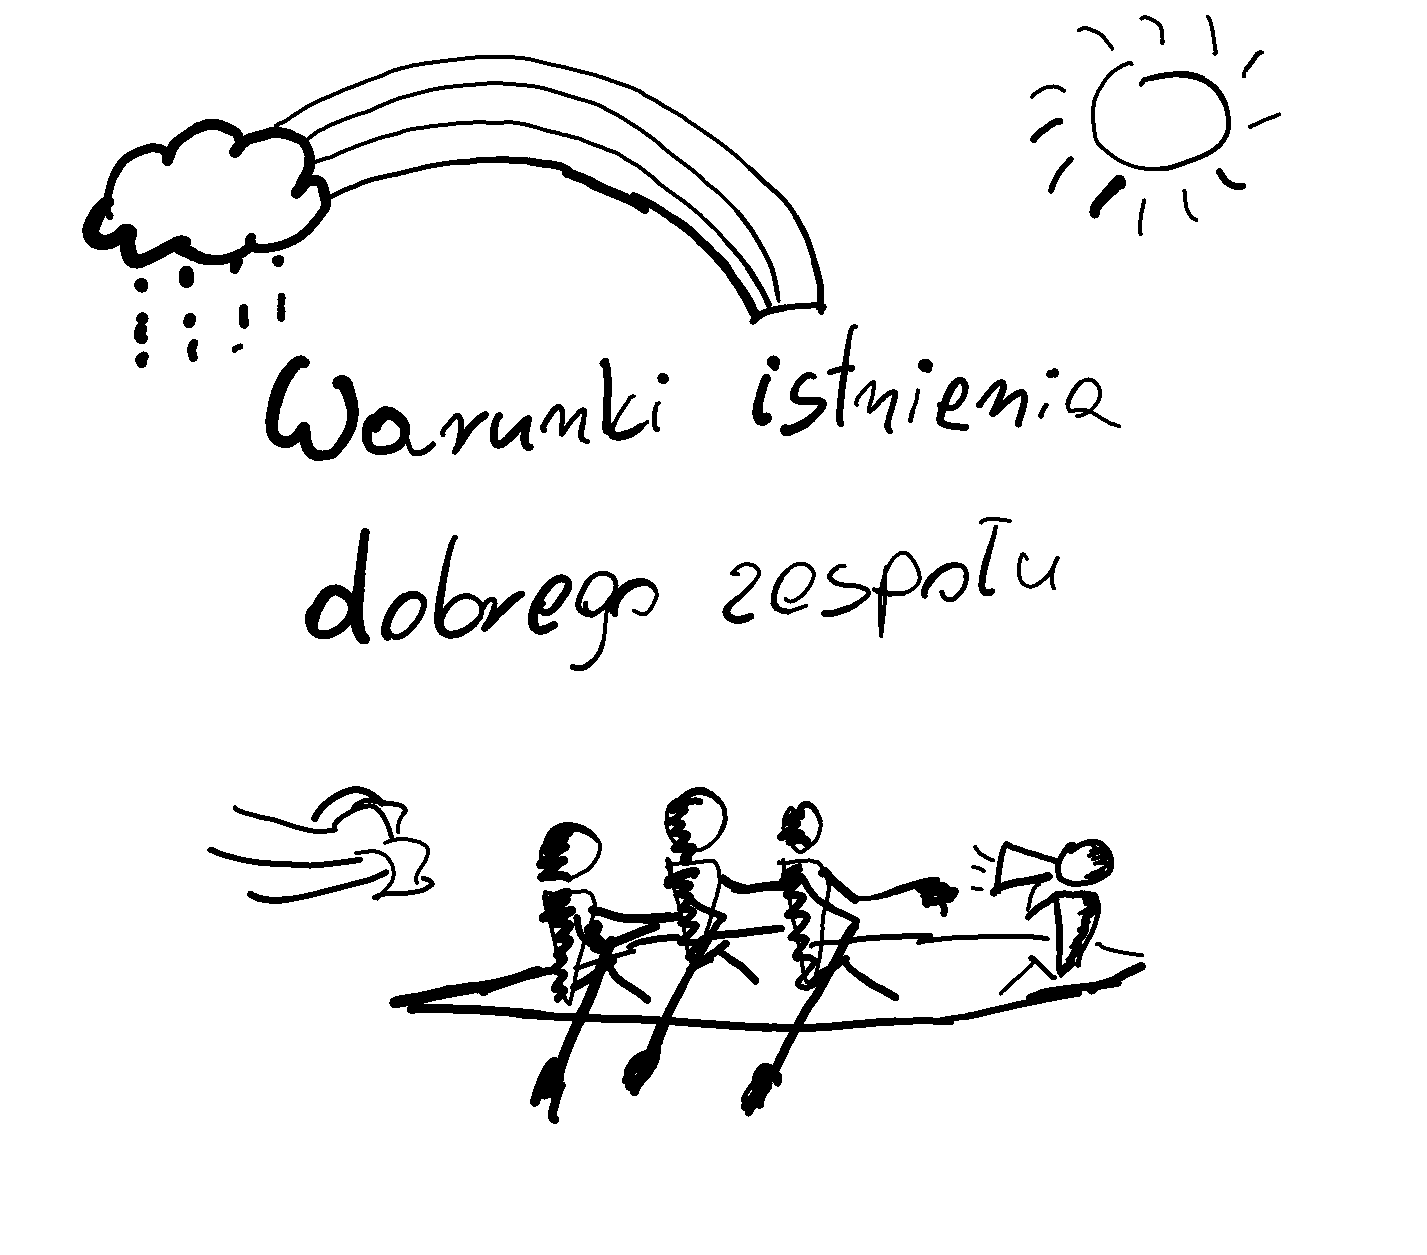 Warunki istnienia
dobrego zespołu